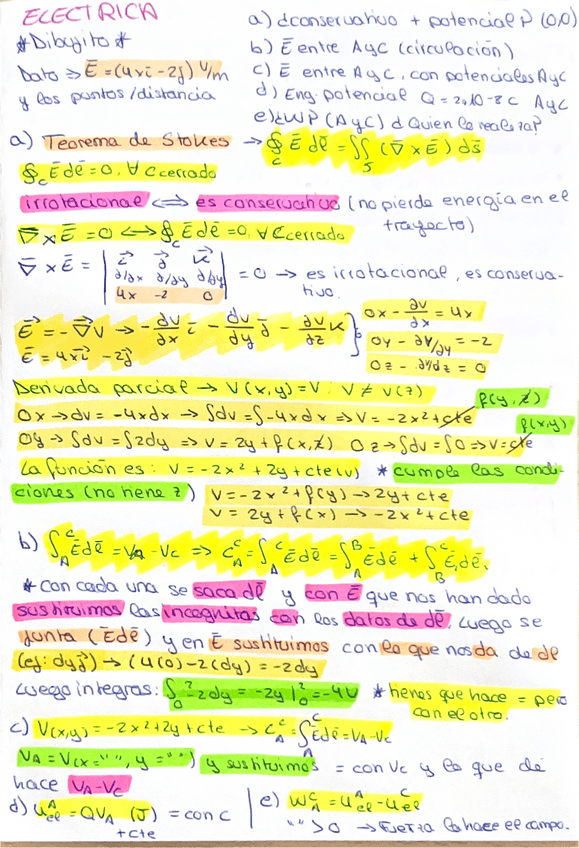 ELECTRICA
*Dibujito*
Dato ⇒ E̅ = (4xi̅ - 2j̅) V/m
y los puntos/distancia
a) ¿conservativo + potencial P (0,0)
b) E̅ entre A y C (circulación)
c) E̅ entre A y C, con potenciales A y C
d) Eng. potencial Q = 2,10^-8 C A y C
e) ¿WP (A y C) ¿Quien lo realiza?
a) Teorema de Stokes → ∮_C E̅ dl̅ = ∬_S (∇̅ x E̅) ds̅
∮_C E̅ dl̅ = 0, ∀ C cerrado
irrotacional ⟺ es conservativo (no pierde energía en el
trayecto)
∇̅ x E̅ = 0 ⟺ ∮_C E̅ dl̅ = 0, ∀ C cerrado
∇̅ x E̅ = | i⃗ j⃗ k⃗ |
| ∂/∂x ∂/∂y ∂/∂y | = 0 → es irrotacional, es conserva-
| 4x -2 0 | tivo.
E⃗ = -∇⃗V → -∂V/∂x i̅ - ∂V/∂y j̅ - ∂V/∂z k
E̅ = 4xi̅ - 2j̅
0x - ∂V/∂x = 4x
0y - ∂V/∂y = -2
0z - ∂V/∂z = 0
Derivada parcial → V(x,y) = V : V ≠ V(z)
f(y,z)
0x → dv = -4xdx → ∫dv = ∫-4xdx ⇒ V = -2x² + cte
f(x,y)
0y → ∫dv = ∫2dy ⇒ V = 2y + f(x,z) 0z → ∫dv = ∫0 ⇒ V = cte
La función es: V = -2x² + 2y + cte (V) * cumple las condi-
ciones (no tiene z)
V = -2x² + f(y) → 2y + cte
V = 2y + f(x) → -2x² + cte
b) ∫_A^C E̅ dl̅ = VA - VC ⇒ C_A^C = ∫_A^C E̅ dl̅ = ∫_A^B E̅ dl̅ + ∫_B^C E̅, dl̅.
* con cada una se saca dl̅ y con E̅ que nos han dado
sustituimos las incognitas con los datos de dl̅, luego se
junta (E̅ dl̅) y en E̅ sustituimos con lo que nos da de dl̅
(ej: dyj⃗) → (4(0) - 2(dy) = -2dy
Luego integras: ∫_0^2 -2dy = -2y|_0^2 = -4V * tienes que hace = pero
con el otro.
c) V(x,y) = -2x² + 2y + cte → C_A^C = ∫_A^C E̅ dl̅ = VA - VC
VA = V(x = " ", y = " ") y sustituimos = con VC y lo que de
hace VA - VC
d) U_el^A = QVA (J) = con C
+ cte
e) W_A^C = U_el^A - U_el^C
" " > 0 → fuerza la hace el campo.